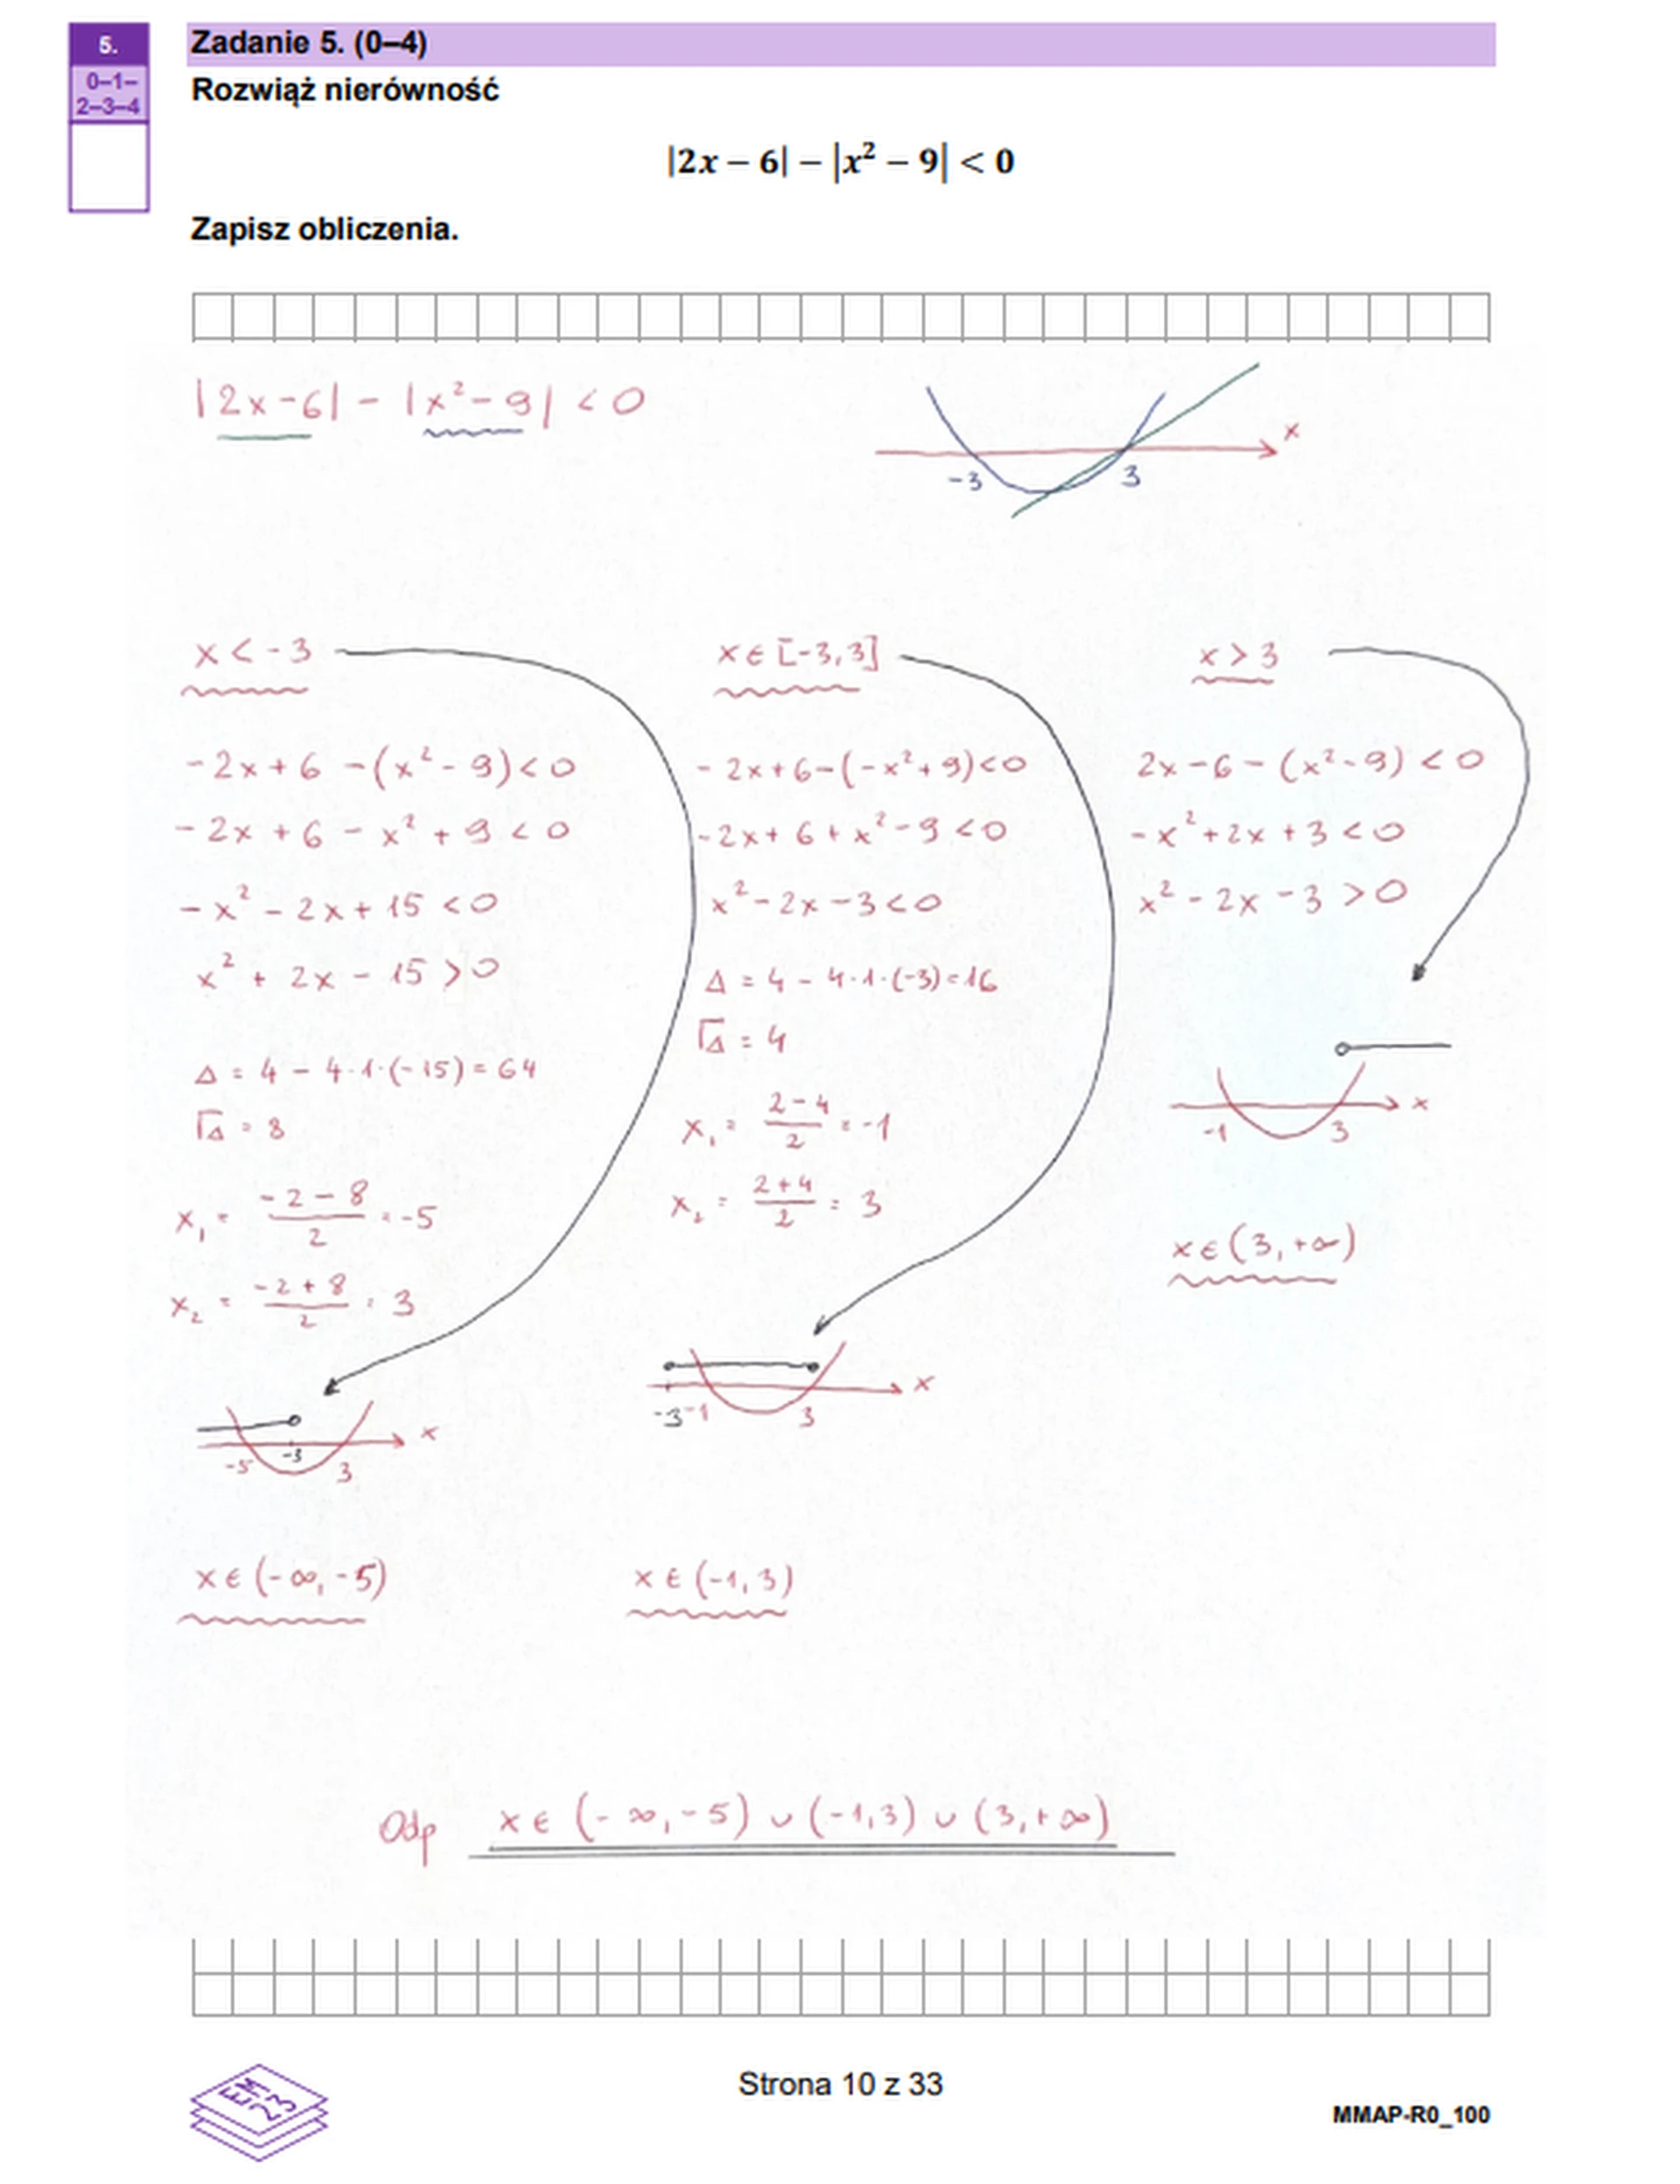 5.
0–1–
2–3–4
Zadanie 5. (0–4)
Rozwiąż nierówność
|2x − 6| − |x² − 9| < 0
Zapisz obliczenia.
|2x-6| - |x²-9| < 0
x
-3
3
x < -3
-2x+6 -(x²-9)<0
-2x+6-x²+9<0
-x²-2x+15<0
x²+2x-15>0
Δ = 4-4·1·(-15)=64
√Δ = 8
x₁ = (-2-8)/2 = -5
x₂ = (-2+8)/2 = 3
-5
-3
3
x
x∈(-∞,-5)
x∈[-3,3]
-2x+6-(-x²+9)<0
-2x+6+x²-9<0
x²-2x-3<0
Δ = 4-4·1·(-3)=16
√Δ = 4
x₁ = (2-4)/2 = -1
x₂ = (2+4)/2 = 3
-3
-1
3
x
x∈(-1,3)
x > 3
2x-6-(x²-9)<0
-x²+2x+3<0
x²-2x-3>0
-1
3
x
x∈(3,+∞)
Odp x∈(-∞,-5)∪(-1,3)∪(3,+∞)
EM
23
Strona 10 z 33
MMAP-R0_100